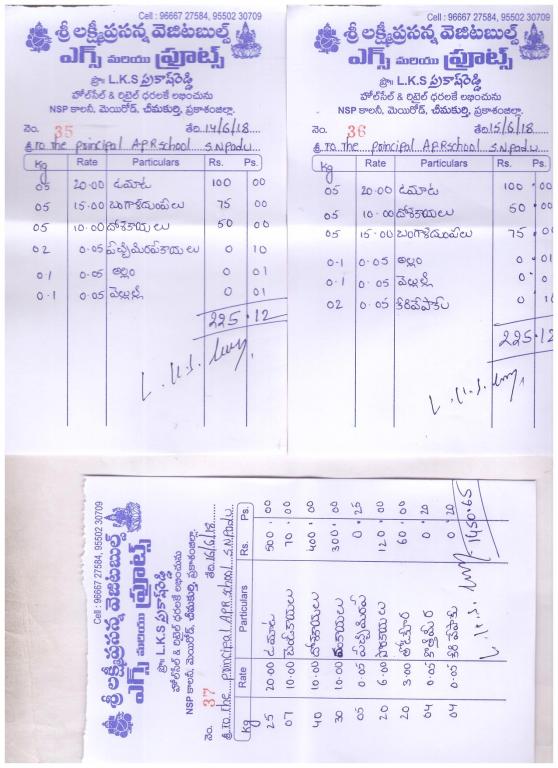 Cell : 96667 27584, 95502 30709
శ్రీ లక్ష్మీప్రసన్న వెజిటబుల్స్
ఎగ్స్ మరియు ఫ్రూట్స్
ప్రొ॥ L.K.S ప్రకాష్‌రెడ్డి
హోల్‌సేల్ & రిటైల్ ధరలకే లభించును
NSP కాలనీ, మెయిన్‌రోడ్, చీమకుర్తి, ప్రకాశంజిల్లా.
నెం. 35 తేది. 14/6/18
శ్రీ To the principal A.P.R school S.N.Padu
Kg Rate Particulars Rs. Ps.
05 20.00 టమాట 100 00
05 15.00 బంగాళదుంపలు 75 00
05 10.00 దోశకాయలు 50 00
02 0.05 పచ్చిమిరపకాయలు 0 10
0.1 0.05 అల్లం 0 01
0.1 0.05 వెల్లుల్లి 0 01
225.12
Cell : 96667 27584, 95502 30709
శ్రీ లక్ష్మీప్రసన్న వెజిటబుల్స్
ఎగ్స్ మరియు ఫ్రూట్స్
ప్రొ॥ L.K.S ప్రకాష్‌రెడ్డి
హోల్‌సేల్ & రిటైల్ ధరలకే లభించును
NSP కాలనీ, మెయిన్‌రోడ్, చీమకుర్తి, ప్రకాశంజిల్లా.
నెం. 36 తేది. 15/6/18
శ్రీ To the principal A.P.R school S.N.Padu
Kg Rate Particulars Rs. Ps.
05 20.00 టమాట 100.00
05 10.00 దోశకాయలు 50.00
05 15.00 బంగాళదుంపలు 75.00
0.1 0.05 అల్లం 0.01
0.1 0.05 వెల్లుల్లి 0.0
02 0.05 కరివేపాకు 0.1
225.12
Cell : 96667 27584, 95502 30709
శ్రీ లక్ష్మీప్రసన్న వెజిటబుల్స్
ఎగ్స్ మరియు ఫ్రూట్స్
ప్రొ॥ L.K.S ప్రకాష్‌రెడ్డి
హోల్‌సేల్ & రిటైల్ ధరలకే లభించును
NSP కాలనీ, మెయిన్‌రోడ్, చీమకుర్తి, ప్రకాశంజిల్లా.
నెం. 37 తేది. 16/6/18
శ్రీ To the principal A.P.R school S.N.Padu
Kg Rate Particulars Rs. Ps.
25 20.00 టమాట 500.00
07 10.00 బెండకాయలు 70.00
40 10.00 దోశకాయలు 400.00
30 10.00 వంకాయలు 300.00
05 0.05 పచ్చిమిరప 0.25
20 6.00 120.00
20 3.00 తోటకూర 60.00
04 0.05 కొత్తిమీర 0.20
04 0.05 కరివేపాకు 0.20
1450.65